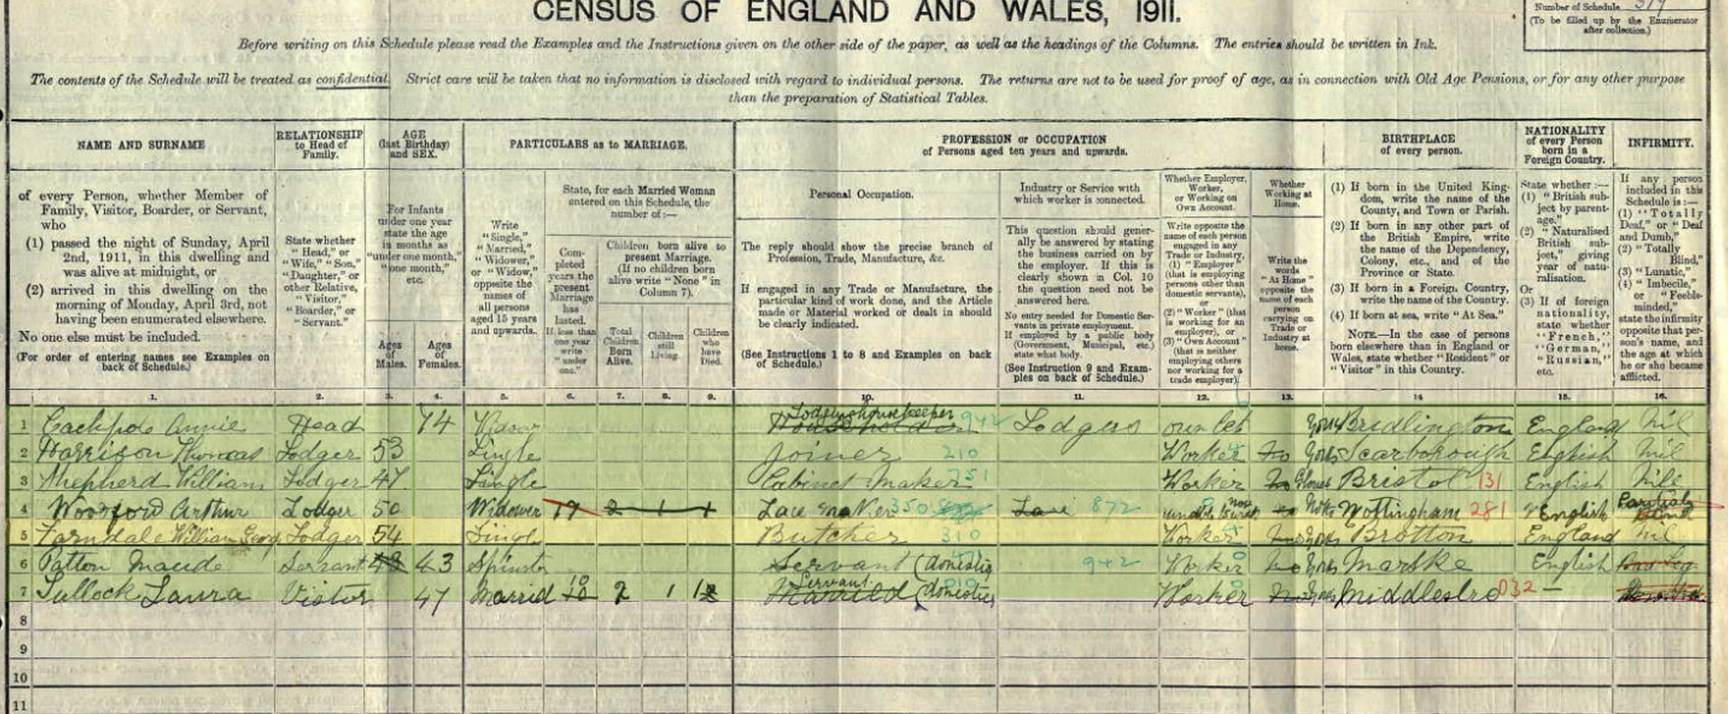 CENSUS OF ENGLAND AND WALES, 1911.
Number of Schedule
(To be filled up by the Enumerator after collection.)
Before writing on this Schedule please read the Examples and the Instructions given on the other side of the paper, as well as the headings of the Columns. The entries should be written in Ink.
The contents of the Schedule will be treated as confidential. Strict care will be taken that no information is disclosed with regard to individual persons. The returns are not to be used for proof of age, as in connection with Old Age Pensions, or for any other purpose
than the preparation of Statistical Tables.
NAME AND SURNAME
RELATIONSHIP to Head of Family.
AGE (last Birthday) and SEX.
PARTICULARS as to MARRIAGE.
PROFESSION or OCCUPATION of Persons aged ten years and upwards.
BIRTHPLACE of every person.
NATIONALITY of every Person born in a Foreign Country.
INFIRMITY.
of every Person, whether Member of Family, Visitor, Boarder, or Servant, who
(1) passed the night of Sunday, April 2nd, 1911, in this dwelling and was alive at midnight, or
(2) arrived in this dwelling on the morning of Monday, April 3rd, not having been enumerated elsewhere.
No one else must be included.
(For order of entering names see Examples on back of Schedule.)
State whether "Head," or "Wife," "Son," "Daughter," or other Relative, "Visitor," "Boarder," or "Servant."
For Infants under one year state the age in months as "under one month," "one month," etc.
Ages of Males.
Ages of Females.
Write "Single," "Married," "Widower," or "Widow," opposite the names of all persons aged 15 years and upwards.
State, for each Married Woman entered on this Schedule, the number of:—
Completed years the present Marriage has lasted. If less than one year write "under one."
Children born alive to present Marriage. (If no children born alive write "None" in Column 7).
Total Children Born Alive.
Children still Living.
Children who have Died.
Personal Occupation.
The reply should show the precise branch of Profession, Trade, Manufacture, &c.
If engaged in any Trade or Manufacture, the particular kind of work done, and the Article made or Material worked or dealt in should be clearly indicated.
(See Instructions 1 to 8 and Examples on back of Schedule.)
Industry or Service with which worker is connected.
This question should generally be answered by stating the business carried on by the employer. If this is clearly shown in Col. 10 the question need not be answered here.
No entry needed for Domestic Servants in private employment. If employed by a public body (Government, Municipal, etc.) state what body.
(See Instruction 9 and Examples on back of Schedule.)
Whether Employer, Worker, or Working on Own Account.
Write opposite the name of each person engaged in any Trade or Industry, (1) "Employer" (that is employing persons other than domestic servants), or (2) "Worker" (that is working for an employer), or (3) "Own Account" (that is neither employing others nor working for a trade employer).
Whether Working at Home.
Write the words "At Home" opposite the name of each person carrying on Trade or Industry at home.
(1) If born in the United Kingdom, write the name of the County, and Town or Parish.
(2) If born in any other part of the British Empire, write the name of the Dependency, Colony, etc., and of the Province or State.
(3) If born in a Foreign Country, write the name of the Country.
(4) If born at sea, write "At Sea."
NOTE.—In the case of persons born elsewhere than in England or Wales, state whether "Resident" or "Visitor" in this Country.
State whether:—
(1) "British subject by parentage."
(2) "Naturalised British subject," giving year of naturalisation.
Or
(3) If of foreign nationality, state whether "French," "German," "Russian," etc.
If any person included in this Schedule is:—
(1) "Totally Deaf," or "Deaf and Dumb,"
(2) "Totally Blind,"
(3) "Lunatic,"
(4) "Imbecile," or "Feeble-minded,"
state the infirmity opposite that person's name, and the age at which he or she became afflicted.
1. 2. 3. 4. 5. 6. 7. 8. 9. 10. 11. 12. 13. 14 15. 16.
1 Annie Head 74 Lodginghousekeeper 942 Lodgers Bridlington England Nil
2 Harrison Thomas Lodger 53 Single Joiner 210 Worker Yorks Scarborough English Nil
3 Shepherd William Lodger 47 Single Cabinet Maker 751 Worker Bristol 131 English
4 Woodford Arthur Lodger 50 Widower 2 1 1 Lace Maker 350 Lace 872 Notts Nottingham 281 English
5 Farndale William Lodger 54 Single Butcher 310 Worker Yorks Brotton England Nil
6 Patton Maude Servant 43 Spinster Servant (domestic 942 Worker Yorks Marske English
7 Laura Visitor 47 Married 10 2 1 1 Servant Married (domestic Worker Middlesbro 032 —
8
9
10
11